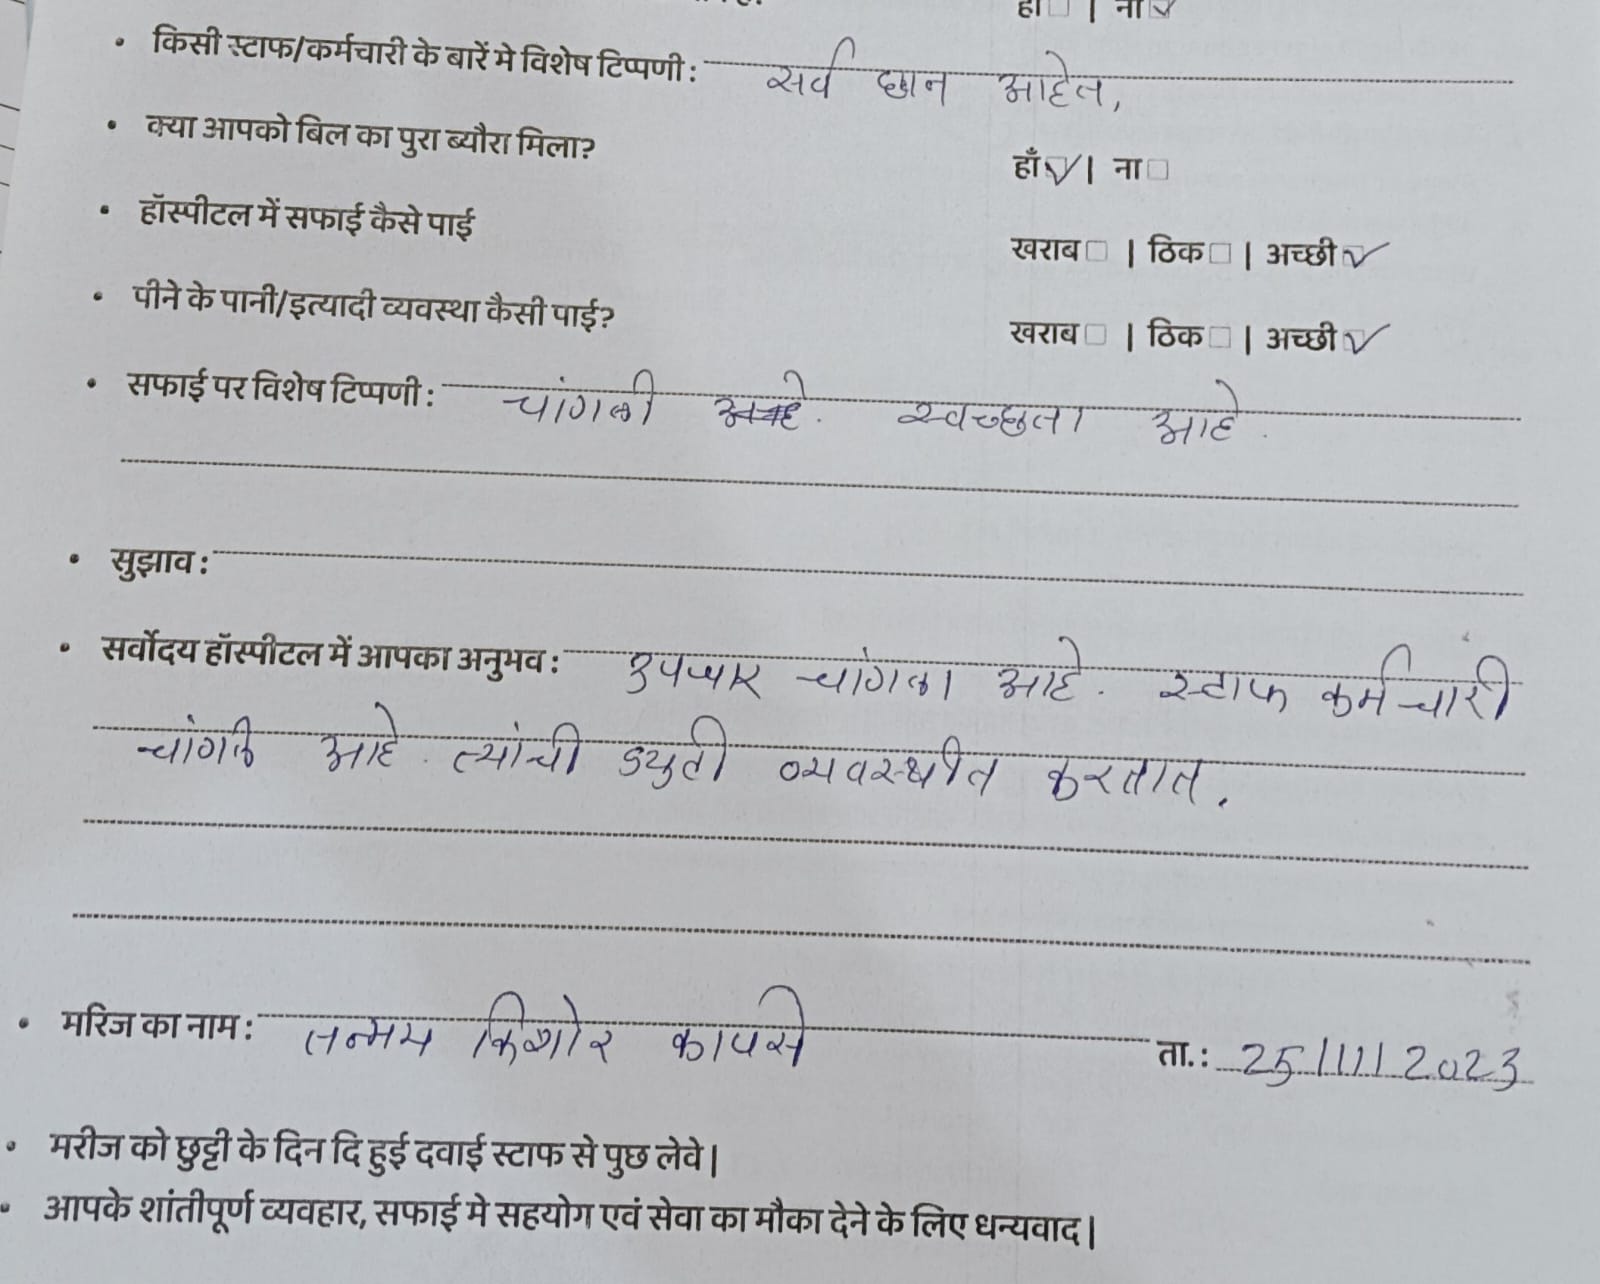 हाँ☐ | ना☑
• किसी स्टाफ/कर्मचारी के बारें मे विशेष टिप्पणी : सर्व छान आहेत,
• क्या आपको बिल का पुरा ब्यौरा मिला? हाँ☑ | ना☐
• हॉस्पीटल में सफाई कैसे पाई खराब☐ | ठिक☐ | अच्छी☑
• पीने के पानी/इत्यादी व्यवस्था कैसी पाई? खराब☐ | ठिक☐ | अच्छी☑
• सफाई पर विशेष टिप्पणी : चांगली आहे. स्वच्छता आहे.
• सुझाव :
• सर्वोदय हॉस्पीटल में आपका अनुभव : उपचार चांगला आहे. स्टाफ कर्मचारी
चांगले आहे. त्यांची ड्युटी व्यवस्थीत करतात.
• मरिज का नाम : तन्मय किशोर कापसे ता. : 25/11/2023
• मरीज को छुट्टी के दिन दि हुई दवाई स्टाफ से पुछ लेवे।
• आपके शांतीपूर्ण व्यवहार, सफाई मे सहयोग एवं सेवा का मौका देने के लिए धन्यवाद।